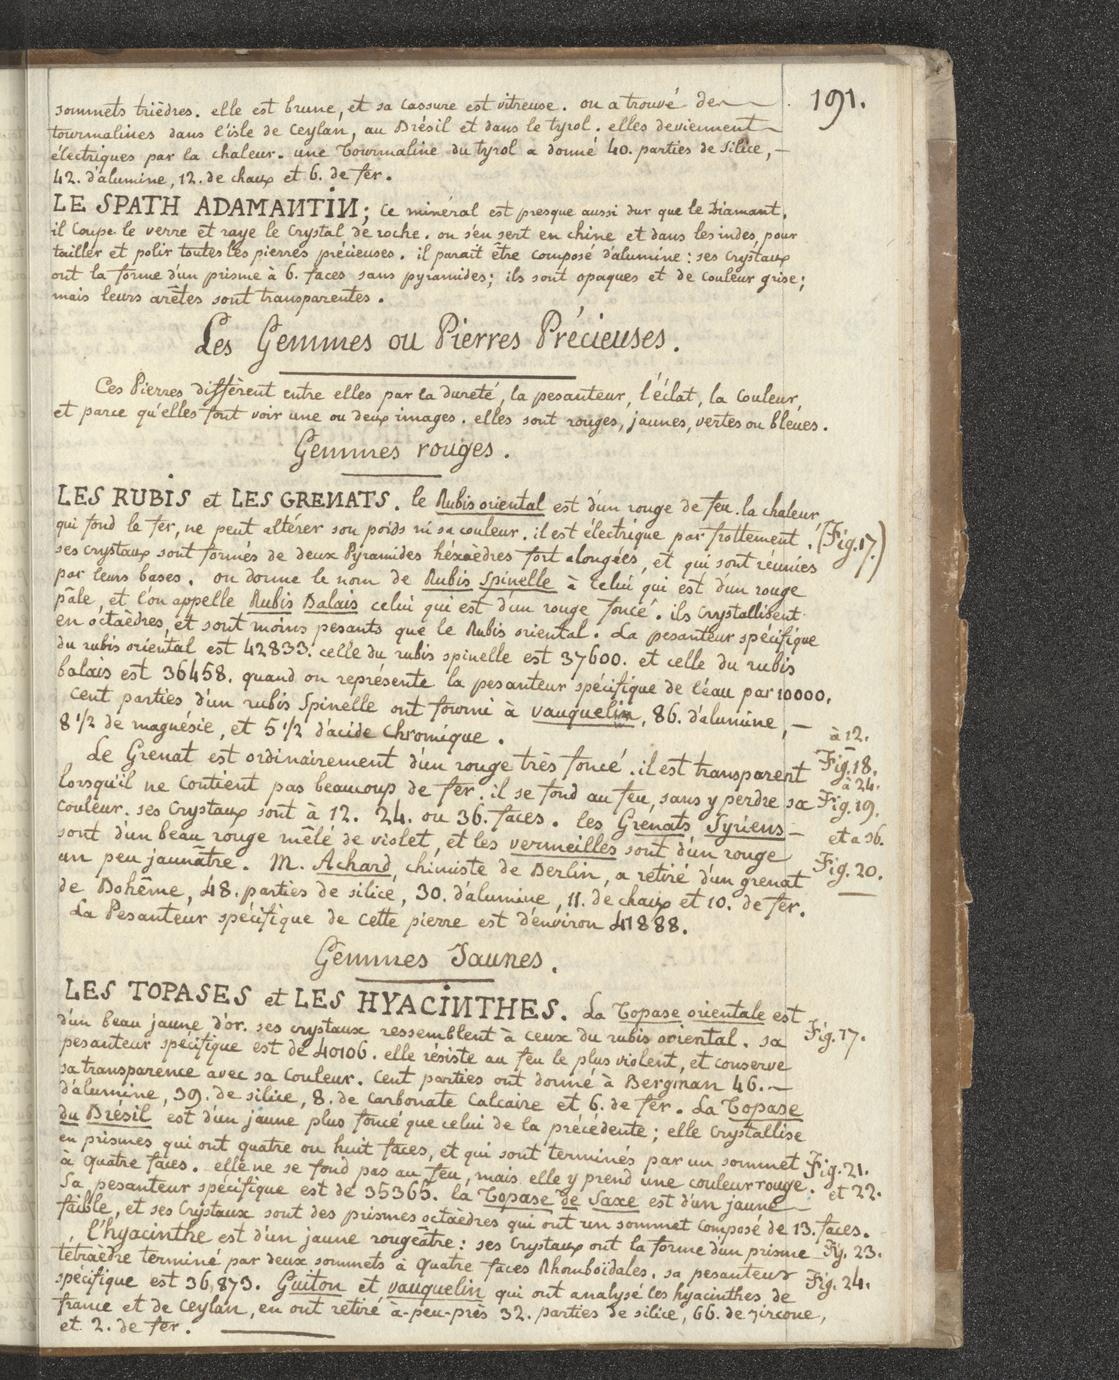 191.
sommets trièdres. elle est brune, et sa Cassure est vitreuse. on a trouvé des
tourmalines dans l'isle de Ceylan, au Brésil et dans le tyrol. elles deviennent
électriques par la chaleur. une Tourmaline du tyrol a donné 40. parties de Silice,
42. d'alumine, 12. de chaux et 6. de fer.
LE SPATH ADAMANTIN; Ce minéral est presque aussi dur que le Diamant,
il Coupe le verre et raye le Crystal de roche. on s'en sert en chine et dans les indes, pour
tailler et polir toutes les pierres précieuses. il parait être composé d'alumine: ses Crystaux
ont la forme d'un prisme à 6. faces sans pyramides; ils sont opaques et de couleur grise;
mais leurs arêtes sont transparentes.
Les Gemmes ou Pierres Précieuses.
Ces Pierres diffèrent entre elles par la dureté, la pesanteur, l'éclat, la Couleur
et parce qu'elles font voir une ou deux images. elles sont rouges, jaunes, vertes ou bleues.
Gemmes rouges.
LES RUBIS et LES GRENATS. le Rubis oriental est d'un rouge de feu. la chaleur
qui fond le fer, ne peut altérer son poids ni sa couleur. il est électrique par frottement. (Fig. 17.)
ses crystaux sont formés de deux Pyramides héxaèdres fort alongées, et qui sont réunies
par leurs bases. on donne le nom de Rubis Spinelle à celui qui est d'un rouge
pâle, et l'on appelle Rubis Balais celui qui est d'un rouge foncé. ils Crystallisent
en octaèdres, et sont moins pesants que le Rubis oriental. La pesanteur spécifique
du rubis oriental est 42833. celle du rubis spinelle est 37600. et celle du rubis
balais est 36458. quand on représente la pesanteur spécifique de l'eau par 10000.
Cent parties d'un rubis Spinelle ont fourni à vauquelin, 86. d'alumine,
8 1/2 de magnésie, et 5 1/2 d'acide Chromique.
à 12.
Le Grenat est ordinairement d'un rouge très foncé. il est transparent Fig. 18.
à 24.
lorsqu'il ne Contient pas beaucoup de fer. il se fond au feu, sans y perdre sa Fig. 19.
Couleur. ses Crystaux sont à 12. 24. ou 36. faces. les Grenats Syriens
et a 36.
sont d'un beau rouge mêlé de violet, et les vermeilles sont d'un rouge
Fig. 20.
un peu jaunâtre. M. Achard, chimiste de Berlin, a retiré d'un grenat
de Bohême, 48. parties de silice, 30. d'alumine, 11. de chaux et 10. de fer.
La Pesanteur spécifique de Cette pierre est d'environ 41888.
Gemmes Jaunes.
LES TOPASES et LES HYACINTHES. La Topase orientale est
d'un beau jaune d'or. ses crystaux ressemblent à ceux du rubis oriental. sa Fig. 17.
pesanteur spécifique est de 40106. elle résiste au feu le plus violent, et conserve
sa transparence avec sa Couleur. Cent parties ont donné à Bergman 46.
d'alumine, 39. de silice, 8. de Carbonate Calcaire et 6. de fer. La Topase
du Brésil est d'un jaune plus foncé que celui de la précédente; elle Crystallise
en prismes qui ont quatre ou huit faces, et qui sont terminés par un sommet Fig. 21.
à Quatre faces. elle ne se fond pas au feu, mais elle y prend une couleur rouge. et 22.
Sa pesanteur spécifique est de 35365. la Topase de Saxe est d'un jaune
faible, et ses Crystaux sont des prismes octaèdres qui ont un sommet Composé de 13. faces.
l'hyacinthe est d'un jaune rougeâtre: ses Crystaux ont la forme d'un prisme Fig. 23.
tétraèdre terminé par deux sommets à Quatre faces Rhomboïdales. sa pesanteur Fig. 24.
spécifique est 36,873. Guiton et vauquelin qui ont analysé les hyacinthes de
france et de Ceylan, en ont retiré à-peu-près 32. parties de silice, 66. de zircone,
et 2. de fer.